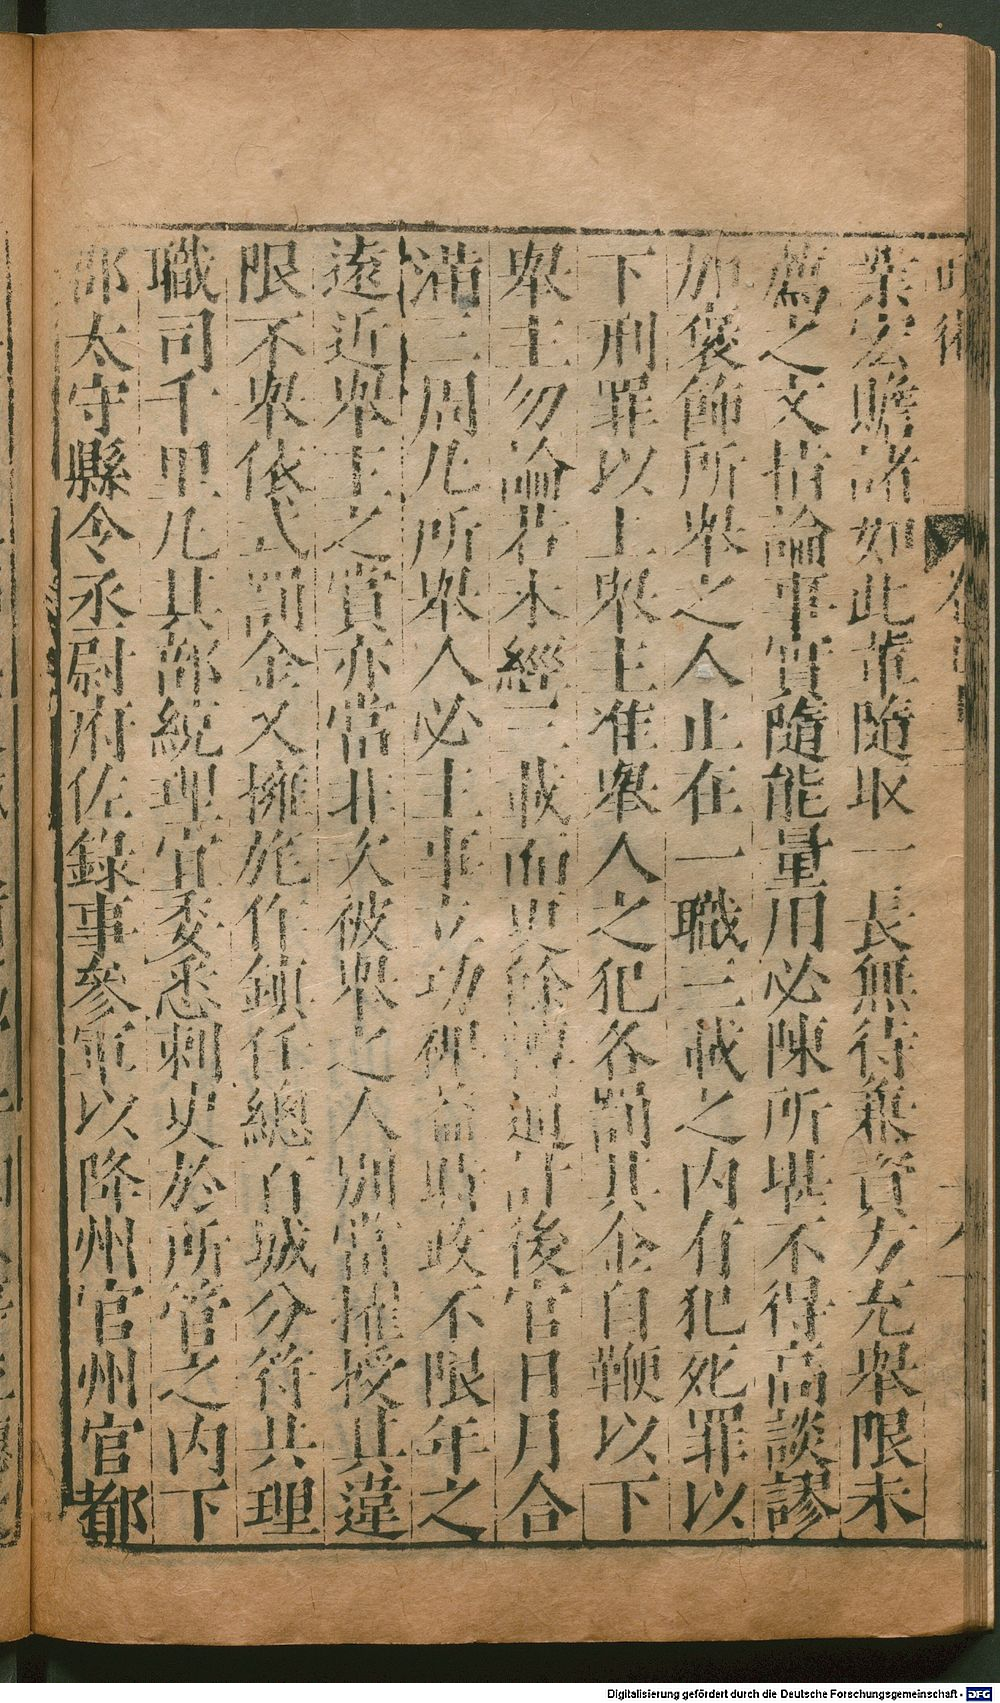 業宏贍諸如此輩隨取一長無待兼資方允舉限未
薦之文指論事實隨能量用必陳所堪不得高談謬
加褒飾所舉之人止在一職三載之內有犯死罪以
下刑罪以上舉主准舉人之犯各罰其金自鞭以下
舉主勿論若未經三載而更餘轉通計後官日月合
滿三周凡所舉人必主事立功裨益時政不限年之
遠近舉主之賞亦當非次被舉之人別當擢授其違
限不舉依式罰金又擁旄作鎮任總百城分符共理
職司千里凡其部統理宜委悉刺史於所管之內下
郡太守縣令丞尉府佐錄事參軍以降州官州官都
Digitalisierung gefördert durch die Deutsche Forschungsgemeinschaft - DFG